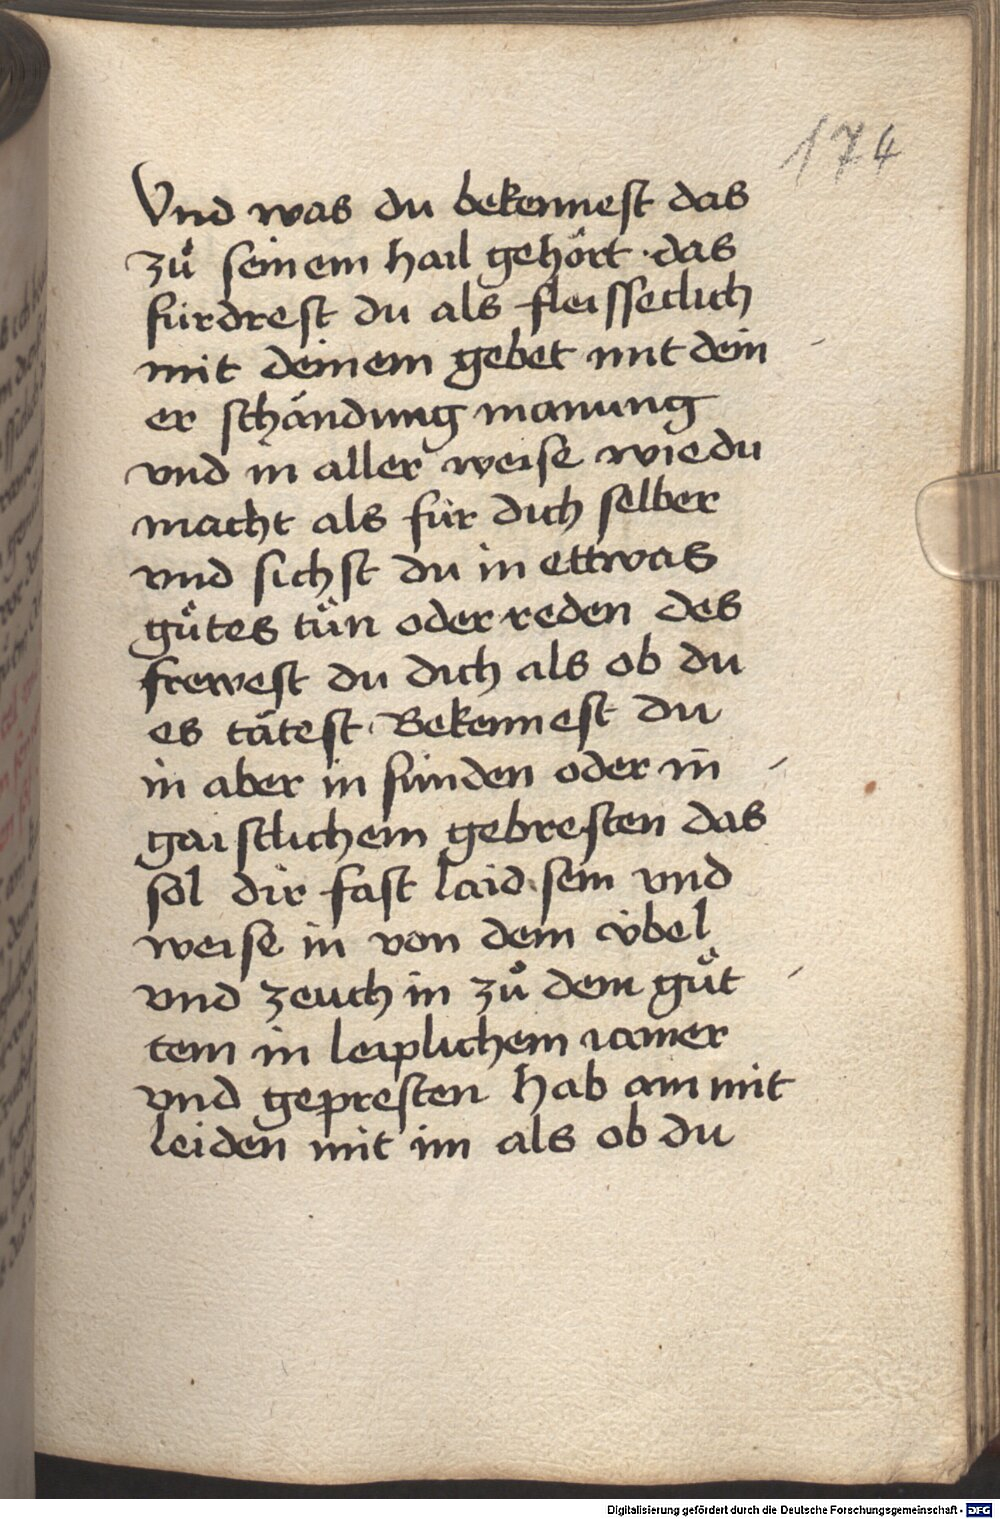 174
Vnd was du bekennest das
zuͦ seinem hail gehört · das
fürdrest du als fleisseclich
mit deinem gebet mit dein
er schändung manung
vnd in aller weise wie du
macht als für dich selber
vnd sichst du in ettwas
guͦtes tuͦn oder reden des
frewest du dich als ob du
es tätest · Bekennest du
in aber in sünden oder in
gaistlichem gebresten das
sol dir fast laid sein vnd
weise in von dem v̈bel
vnd zeuch in zuͦ dem guͦt
tem in leiplichem iamer
vnd gepresten hab ain mit
leiden mit im als ob du
Digitalisierung gefördert durch die Deutsche Forschungsgemeinschaft - DFG